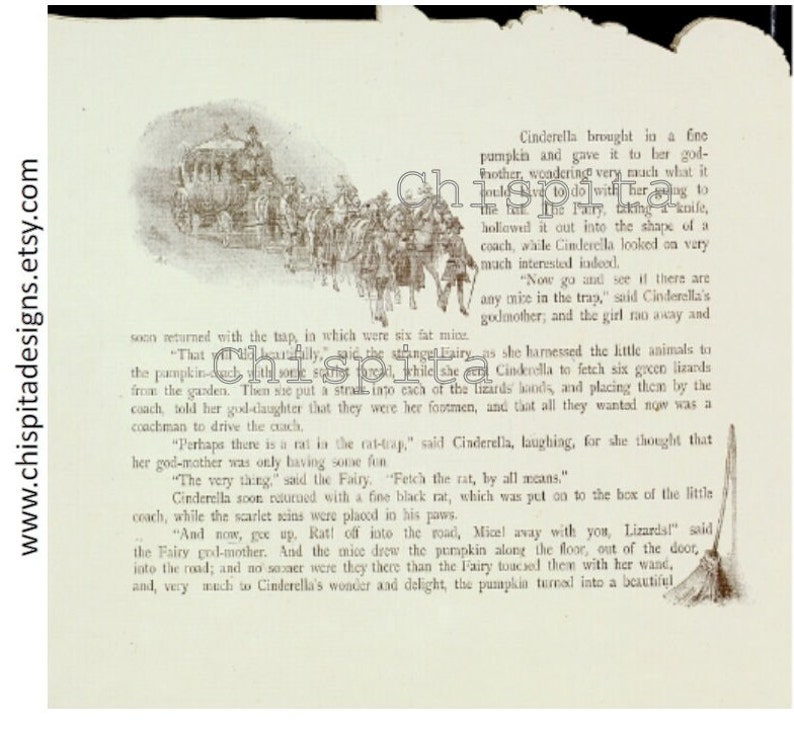 www.chispitadesigns.etsy.com
Cinderella brought in a fine
pumpkin and gave it to her god-
mother, wondering very much what it
could have to do with her going to
the ball. The Fairy, taking a knife,
hollowed it out into the shape of a
coach, while Cinderella looked on very
much interested indeed.
"Now go and see if there are
any mice in the trap," said Cinderella's
godmother; and the girl ran away and
soon returned with the trap, in which were six fat mice.
"That will do beautifully," said the strange Fairy, as she harnessed the little animals to
the pumpkin-coach with some scarlet thread, while she sent Cinderella to fetch six green lizards
from the garden. Then she put a straw into each of the lizards' hands, and placing them by the
coach, told her god-daughter that they were her footmen, and that all they wanted now was a
coachman to drive the coach.
"Perhaps there is a rat in the rat-trap," said Cinderella, laughing, for she thought that
her god-mother was only having some fun.
"The very thing," said the Fairy. "Fetch the rat, by all means."
Cinderella soon returned with a fine black rat, which was put on to the box of the little
coach, while the scarlet reins were placed in his paws.
"And now, gee up, Rat! off into the road, Mice! away with you, Lizards!" said
the Fairy god-mother. And the mice drew the pumpkin along the floor, out of the door,
into the road; and no sooner were they there than the Fairy touched them with her wand,
and, very much to Cinderella's wonder and delight, the pumpkin turned into a beautiful
Chispita
Chispita